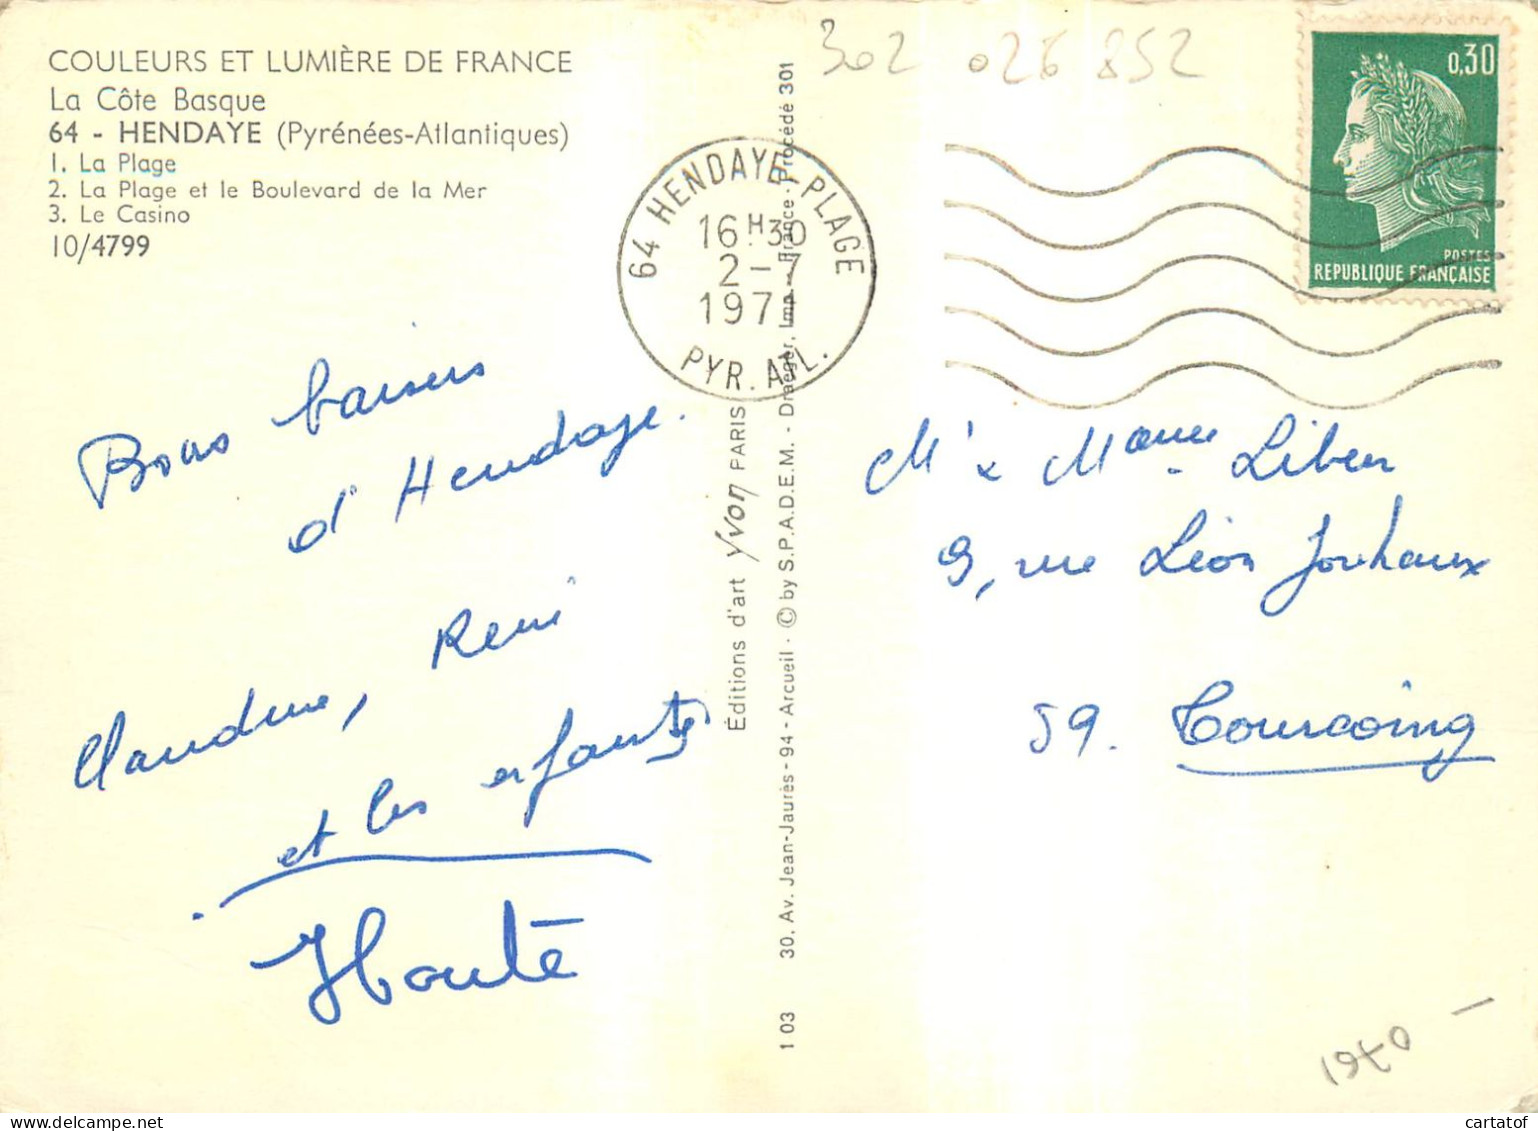 COULEURS ET LUMIÈRE DE FRANCE
La Côte Basque
64 - HENDAYE (Pyrénées-Atlantiques)
1. La Plage
2. La Plage et le Boulevard de la Mer
3. Le Casino
10/4799
302 026 852
0,30
POSTES
REPUBLIQUE FRANÇAISE
64 HENDAYE-PLAGE
16H30
2-7
1971
PYR. ATL.
Bons baisers
d'Hendaye.
Claudine, René
et les enfants
Houté
Éditions d'art Yvon PARIS
103 30, Av. Jean-Jaurès - 94 - Arcueil - © by S.P.A.D.E.M. - Draeger, Imp. - France - Procédé 301
Mr & Mme Liben
9, rue Léon Jouhaux
59. Tourcoing
1970 -
cartatof